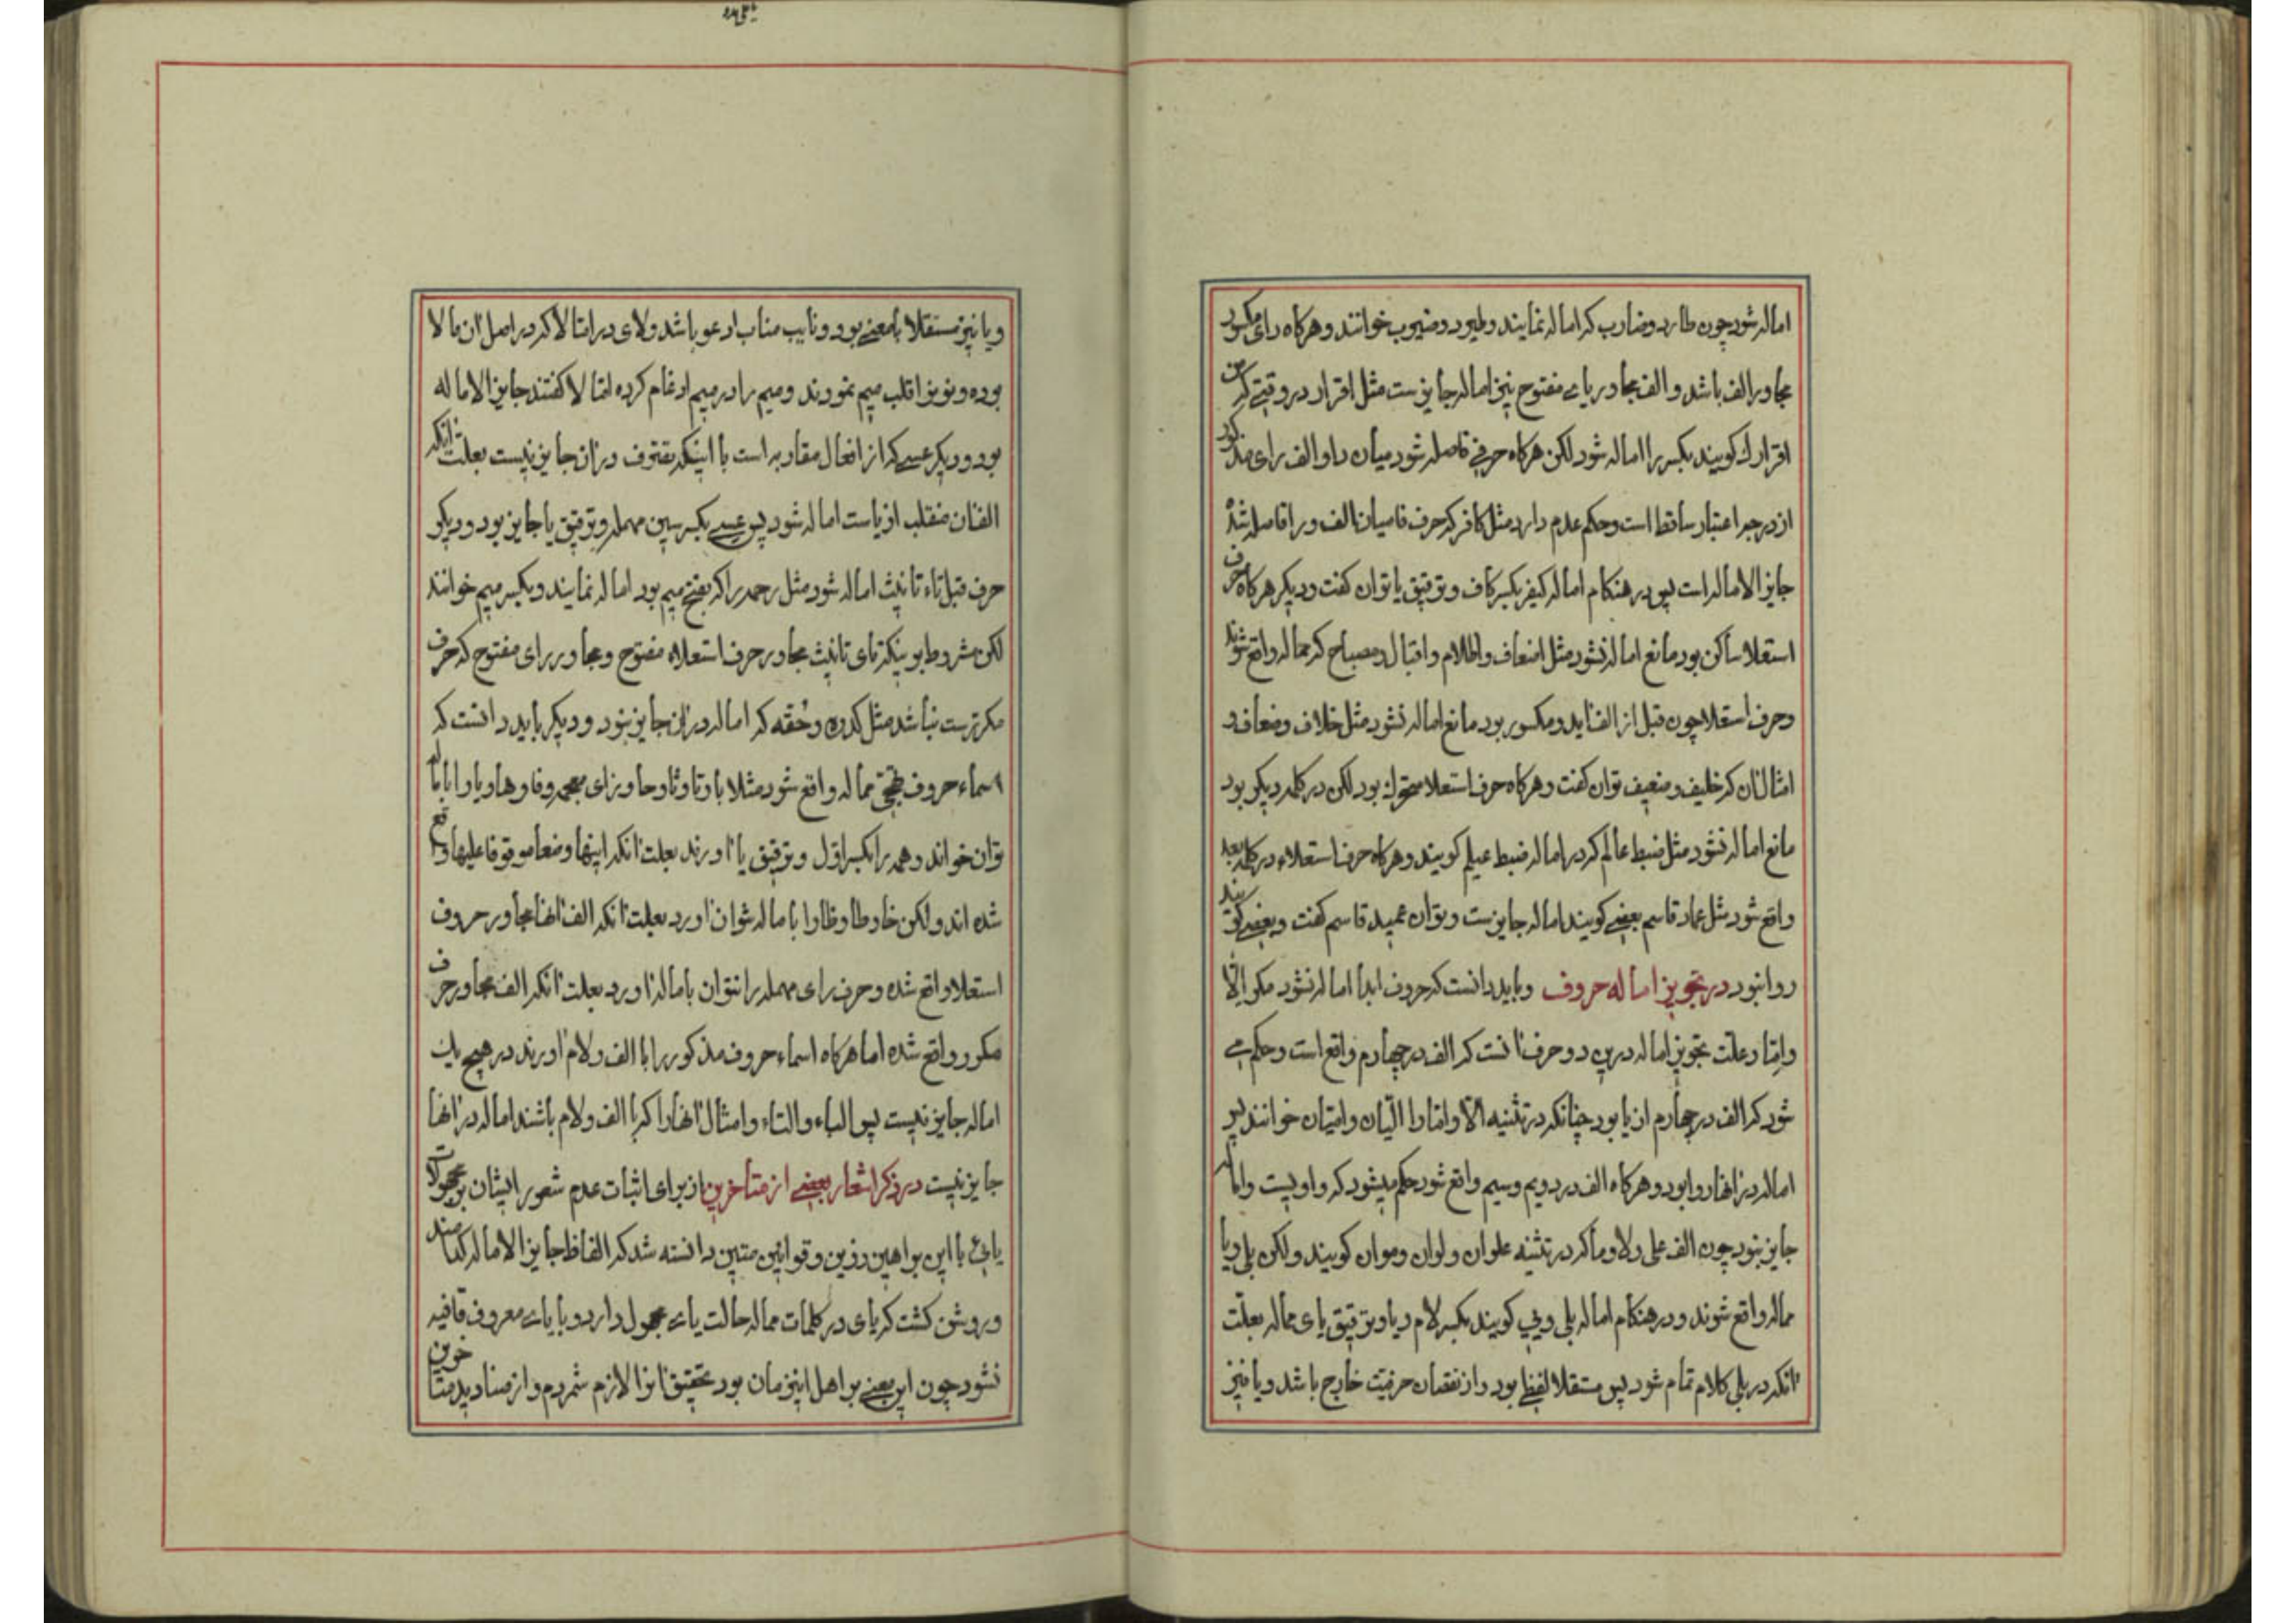 اماله شود چون طارد و ضارب که اماله نمایند و طیرد و ضیرب خوانند و هرکاه رای مکسور
مجاور الف باشد و الف مجاور یای مفتوح نیز اماله جایزست مثل اقرار در وقتی که من
اقرارك کویند بکسر را اماله شود لکن هرکاه حرفی فاصله شود میان را و الف رای مذکور
از درجه اعتبار ساقط است و حکم عدم دارد مثل کافر که حرف فا میان الف و را فاصله شده
جایز الاماله است پس در هنکام اماله کیفر بکسر کاف و توقیق یا توان کفت و دیکر هرکاه حرف
استعلا ساکن بود مانع اماله نشود مثل اضعاف و اظلام و اقبال و مصباح که ممال واقع شوند
و حرف استعلا چون قبل از الف اید و مکسور بود مانع اماله نشود مثل خلاف و ضعاف و
امثال ان که خلیف و ضعیف توان کفت و هرکاه حرف استعلا متحرك بود لکن در کلمه دیکر بود
مانع اماله نشود مثل ضبط عالم که در اماله ضبط عیلم کویند و هرکاه حرف استعلاء در کلمه بعد
واقع شود مثل عماد قاسم بعضی کویند اماله جایزست و توان عمید قاسم کفت و بعضی کویند
روا نبود در تجویز اماله حروف و باید دانست که حروف ابدا اماله نشود مکر الّا
و امّا و علت تجویز اماله درین دو حرف انست که الف در چهارم واقع است و حکم می
شود که الف در چهارم از یا بود چنانکه در تثنیه الّا و امّا را الّیان و امّیان خوانند پس
اماله در انها روا بود و هرکاه الف در دویم و سیم واقع شود حکم میشود که واویست و اماله
جایز نبود چون الف علی و لا و ما که در تثنیه علوان و لوان و موان کویند و لکن بلی و یا
مماله واقع شوند و در هنکام اماله بلی و یی کویند بکسر لام و یا و توقیق یای مماله بعلّت
انکه در بلی کلام تمام شود پس مستقلا لفظی بود و از نقصان حرفیت خارج باشد و یا نیز
و یا نیز مستقلا بامعنی بود و نایب مناب ادعو باشد و لای در امّا لا که در اصل ان ما لا
بوده و نونرا قلب میم نمودند و میم را در میم ادغام کرده امّا لا کفتند جایز الاماله
بود و دیکر عسی که از افعال مقاربه است با اینکه تصرف دران جایز نیست بعلت انکه
الف ان منقلب از یاست اماله شود پس عسی بکسر سین مهمله و توقیق یا جایز بود و دیکر
حرف قبل تاء تانیث اماله شود مثل رحمه را که بفتح میم بود اماله نمایند و بکسر میم خوانند
لکن مشروط بر اینکه تای تانیث مجاور حرف استعلاء مفتوح و مجاور رای مفتوح که حرف
مکررست نباشد مثل کدره و حُقّه که اماله دران جایز نبود و دیکر باید دانست که
اسماء حروف تهجّی مماله واقع شود مثلا با و تا و ثا و حا و زای معجمه و فا و ها و یا را باماله
توان خواند و همه را بکسر اوّل و توقیق یا اورند بعلت انکه اینها وضعا موقوفا علیها واقع
شده اند و لکن خا و طا و ظا را باماله نتوان اورد بعلت انکه الف انها مجاور حروف
استعلا واقع شده و حرف رای مهمله را نتوان باماله اورد بعلت انکه الف مجاور حرف
مکرر واقع شده اما هرکاه اسماء حروف مذکور را با الف و لام اورند در هیچ یك
اماله جایز نیست پس الباء و التاء و امثال انها را که با الف و لام باشند اماله در انها
جایز نیست در ذکر اشعار بعضی از متأخرین از برای اثبات عدم شعور ایشان بر مجهولات
یائی با این براهین رزین و قوانین متین دانسته شد که الفاظ جایز الاماله کدامند
و روشن کشت که یای در کلمات مماله حالت یای مجهول دارد و با یای معروف قافیه
نشود چون این معنی بر اهل اینزمان بود تحقیق انرا لازم شمردم و از صنادید متاخرین